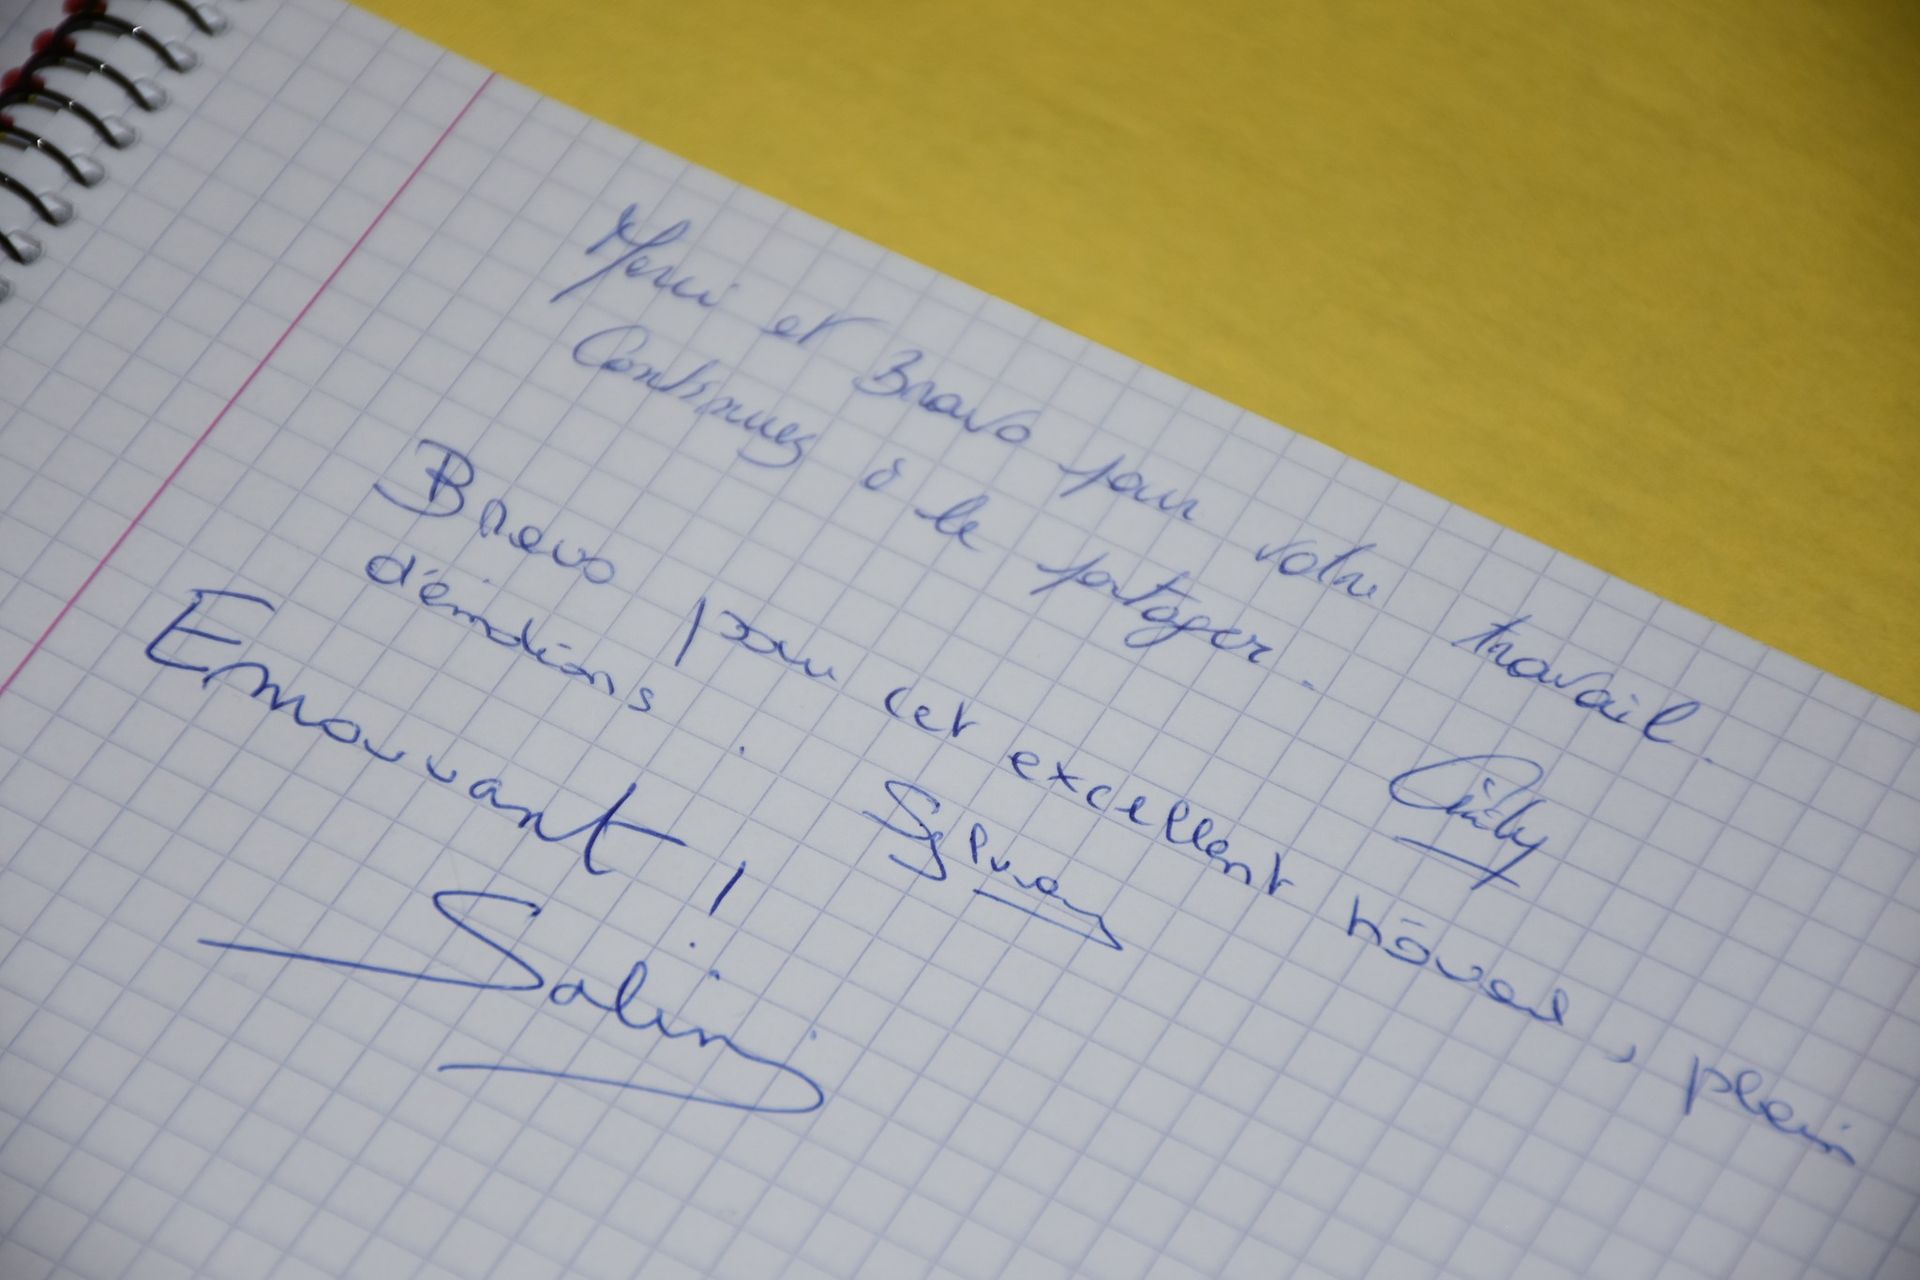 Merci et Bravo pour votre travail.
Continuez à le partager.
Bravo pour cet excellent travail, plein
d'émotions.
Emouvant !